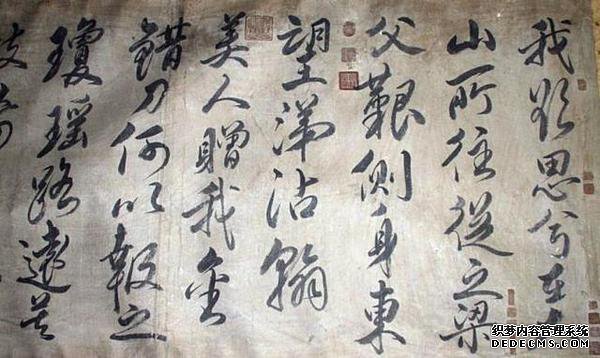 我所思兮在
山所往從之梁
父艱側身東
望涕沾翰
美人贈我金
錯刀何以報之
瓊瑤路遠莫
织梦内容管理系统
DEDECMS.COM